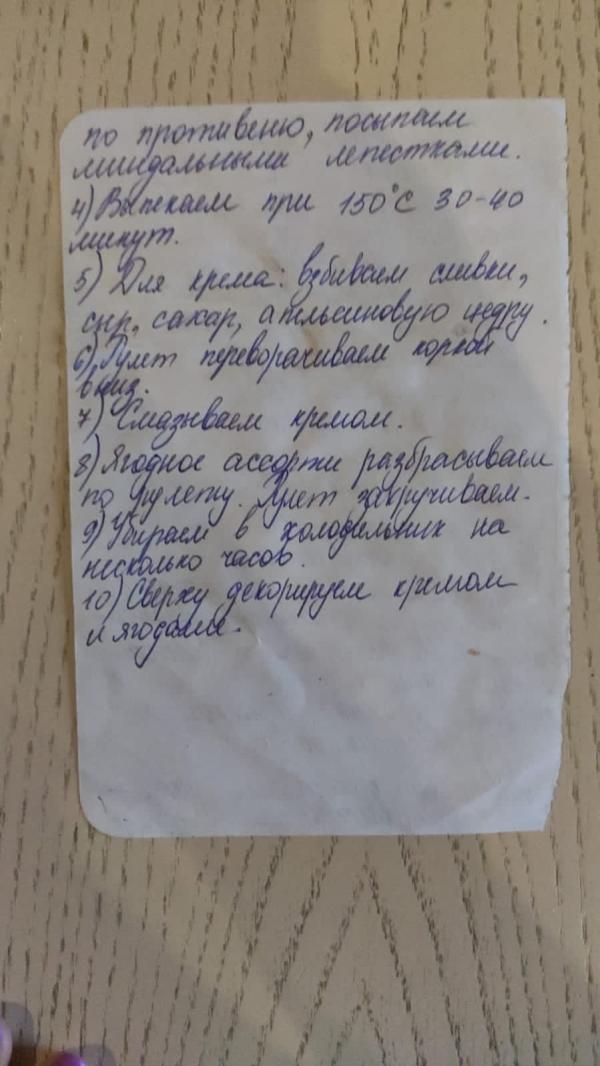 по противеню, посыпаем
миндальными лепестками.
4) Выпекаем при 150°С 30-40
минут.
5) Для крема: взбиваем сливки,
сыр, сахар, апельсиновую цедру.
6) Рулет переворачиваем коркой
вниз.
7) Смазываем кремом.
8) Ягодное ассорти разбрасываем
по рулету. Рулет закручиваем.
9) Убираем в холодильник на
несколько часов.
10) Сверху декорируем кремом
и ягодами.